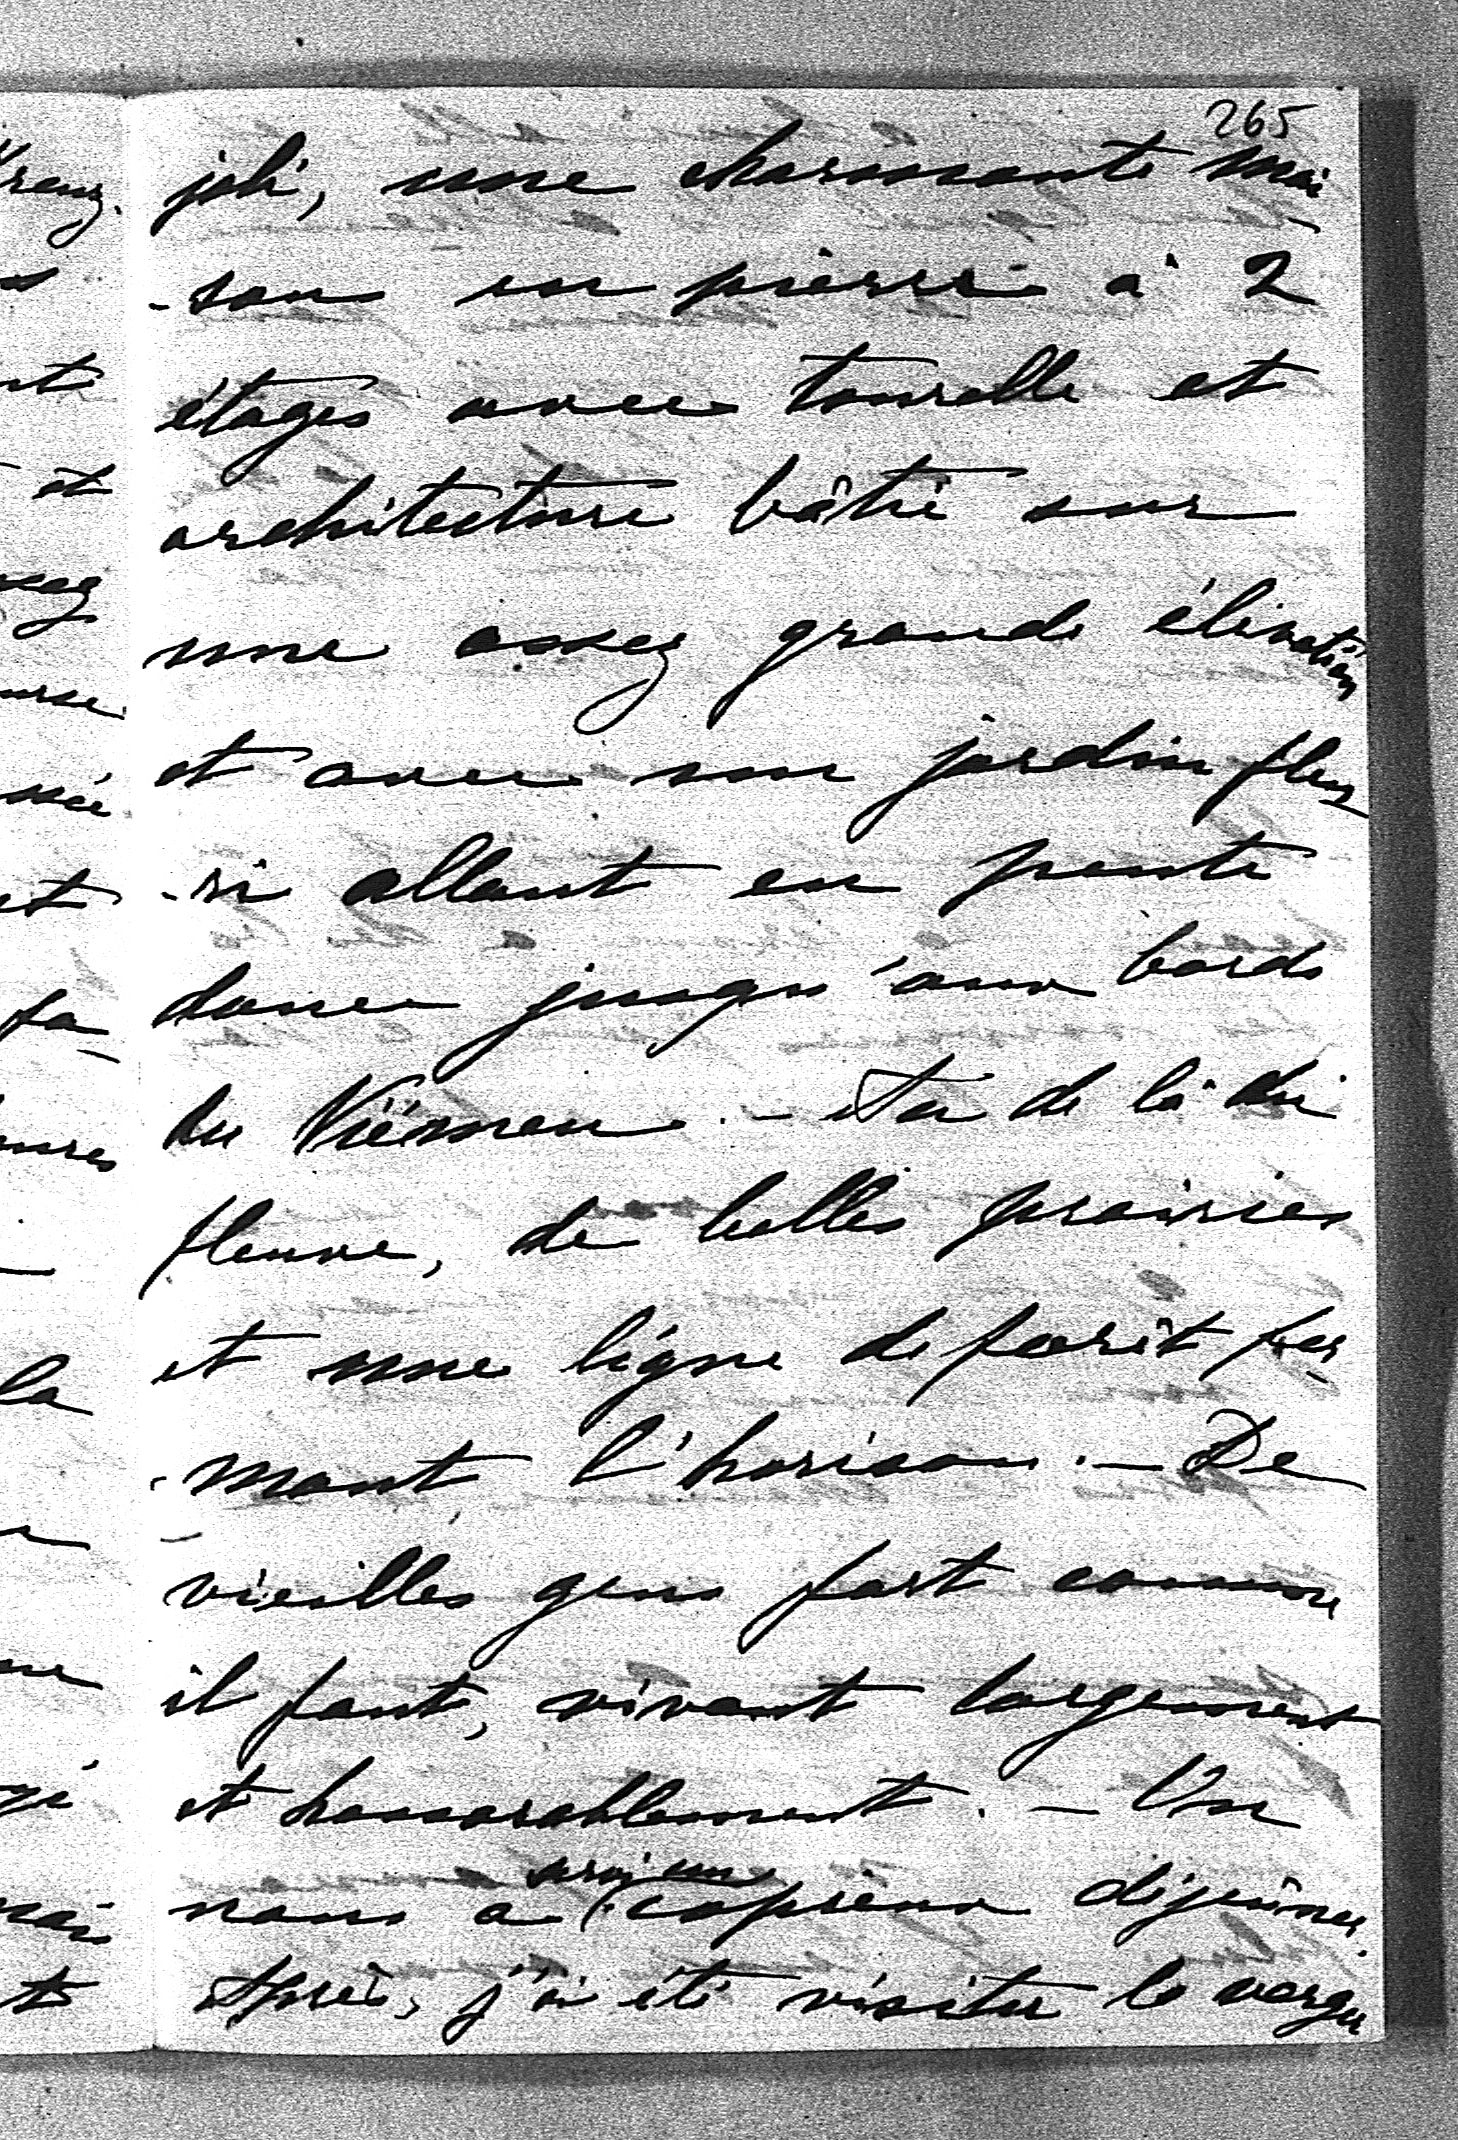 265
joli, une charmante mai-
-son en pierre à 2
étages avec tourelle et
architecture bâtie sur
une assez grande élévation
et avec un jardin fleu-
-ri allant en pente
douce jusqu'aux bords
du Niémen. – Au de là du
fleuve, de belles prairies
et une ligne de forêt for-
-mant l'horison. – De
vieilles gens fort comme
il faut, vivant largement
et honorablement. – On
nous a servi un copieux déjeûner.
Après, j'ai été visiter le verger